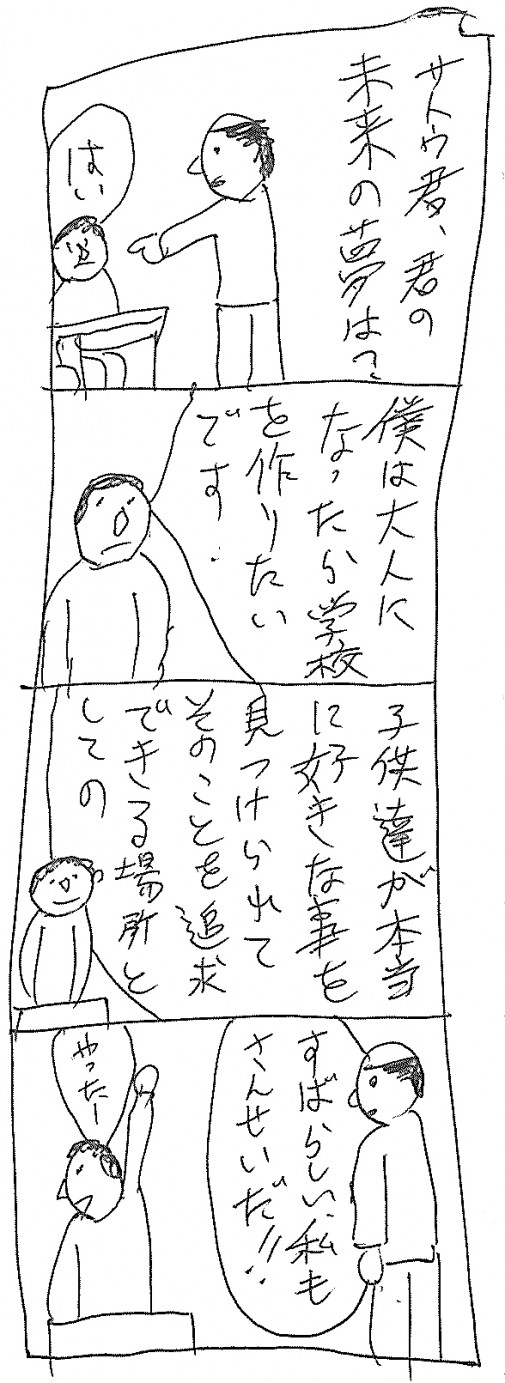 サトウ君、君の
未来の夢は？
はい
僕は大人に
なったら学校
を作りたい
です。
子供達が本当
に好きな事を
見つけられて
そのことを追求
できる場所と
しての
すばらしい、私も
さんせいだ!!
やったー